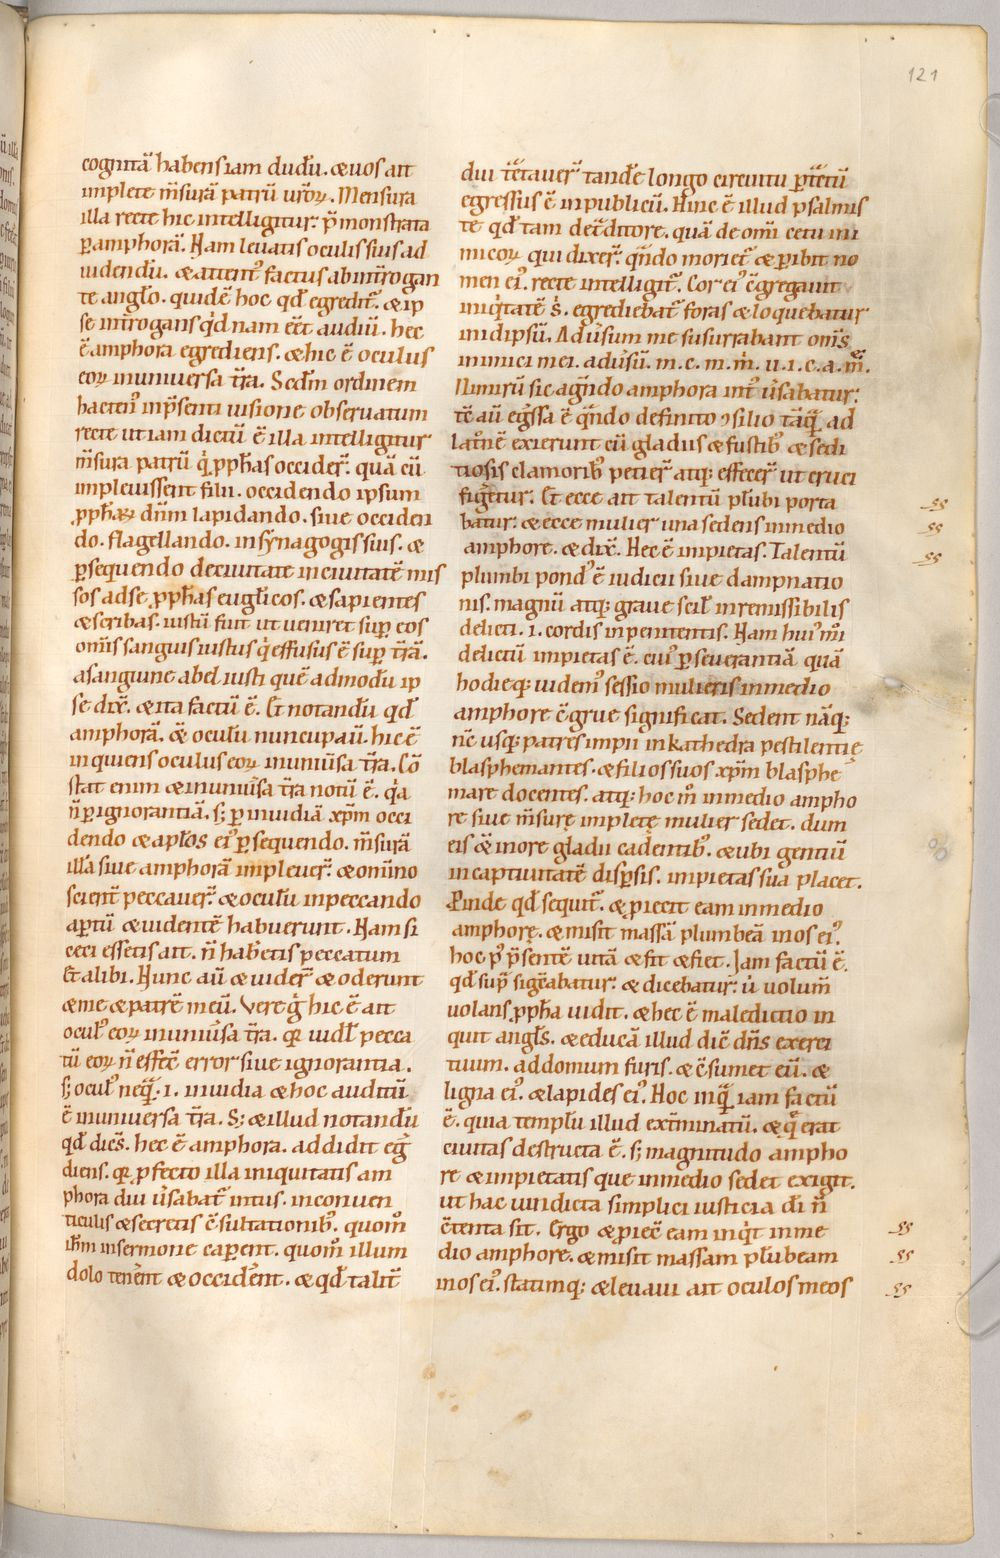 121
cognitā habens iam dudū. & uos ait
implete m̄surā patrū ur̄oꝝ. Mensura
illa recte hic intelligitur. p̄monstrata
ꝑ amphorā. Nam leuatis oculis suis ad
uidendū. & attent᷒ factus ab int̄rogan
te anglo. quidē hoc qd̄ egredit᷒. & ip
se int̄rogans qd nam eēt audiuī. hec
ē amphora egrediens. & hic ē oculus
eoꝝ in uniuersa t̄ra. Sedm̄ ordinem
hacten᷒ in p̄senti uisione obseruatum
recte ut iam dictū ē illa intelligitur
m̄sura patrū qͥ pphas occider̄. quā cū
impleuissent filii. occidendo ipsum
ꝓphaꝝ dn̄m lapidando. siue occiden
do. flagellando. in synagogis suis. &
ꝑsequendo de ciuitate in ciuitatē mis
sos ad se ꝓphas euglicos. & sapientes
& scribas. iustū fuit ut ueniret suꝑ eos
omīs sanguis iustus qͥ effusus ē suꝑ t̄rā.
a sanguine abel iusti quē admodū ip
se dix̄. & ita factū ē. Et notandū qd̄
amphorā. & oculū nuncupauī. hic ē
inquiens oculus eoꝝ in uniūsa t̄ra. Cō
stat enim & in uniūsa t̄ra notū ē. qͥa
n̄ ꝑ ignorantiā. s; ꝑ inuidiā xp̄m occi
dendo & aplos ei᷒ ꝑsequendo. m̄surā
illā siue amphorā impleuer̄. & omīno
scient̄ peccauer̄. & oculū in peccando
aꝑtū & uidentē habuerunt. Nam si
ceci essetis ait. n̄ haberetis peccatum
Et alibi. Nunc aū & uider̄ & oderunt
& me & patrē meū. Vere g̊ hic ē ait
ocul᷒ eoꝝ in uniūsa t̄ra. qꝛ uidt̄ pecca
tū eoꝝ n̄ effeč error siue ignorantia.
s; ocul᷒ neqͣ. .i. inuidia & hoc auditū
ē in uniuersa t̄ra. S; & illud notandū
qd̄ dicēs. hec ē amphora. addidit eg̊
diens. qꝛ ꝓfecto illa iniquitatis am
phora diu ūsabat᷒ intus. in conuen
ticulis & secretis c̄sultationib᷒. quom̊
ih̄m in sermone caperent. quom̊ illum
dolo tener̄ent & occiderent. & qd̄ talit̄
diu t̄tetauer̄ tandē longo circuitu ꝑt̄etū
egressus ē in publicū. Hinc ē illud psalmis
te qd̄ tam de t̄ditore. quā de omī cetu ini
micoꝝ qui dixer̄. qn̄do moriet᷒ & ꝑibit no
men ei᷒. recte intelligit᷒. Cor ei᷒ c̄gregauit
iniqͥtatē s̊. egrediebat᷒ foras & loquebatur
in idipsū. Aduersum me susurrabant om̄s
inimici mei. aduersū. m. c. m. m̊. u. i. c. a. m̊.
Nimirū sic agendo amphora int᷒ ūsabatur.
t̄c aū eg̊ssa ē qn̄do definito ꝯsilio tāqͣ ad
latronē exierunt cū gladiis & fustib᷒ & sedi
tiosis clamorib᷒ petier̄ atq; effecer̄ ut cruci
figeretur. Et ecce ait talentū plūbi porta
batur. & ecce mulier una sedens in medio
amphore. & dix̄. Hec ē impietas. Talentū
plumbi pond᷒ ē iudicii siue dampnatio
nis. magnū atq; graue scil̄ inremissibilis
delicti. .i. cordis inpenitentis. Nam hui᷒ mͥ
delictū impietas ē. cui᷒ ꝑseuerantiā quā
hodieq; uidem᷒ sessio mulieris in medio
amphore c̄grue significat. Sedent nāq;
nc̄ usq; patres impii in kathedra pestilentię
blasphemantes. & filios suos xp̄m blasphe
mare docentes. atq; hoc m̊ in medio ampho
re siue m̄surę impletę mulier sedet. dum
eis & in ore gladii cadentib᷒. & ubi gentiū
in captiuitatē dispsis. impietas sua placet.
Proinde qd̄ sequit᷒. & piecit eam in medio
amphorę. & misit massā plumbeā in os ei᷒.
hoc p᷒ p̄sentē uitā & fit & fiet. Iam factū ē.
qd̄ supͣ sig̊ēabatur. & dicebatur. ū uolum̄
uolans ꝓpha uidit. & hec ē maledictio in
quit angl̄s. & educā illud dic̄ dn̄s exerci
tuum. ad domum furis. & c̄sumet eū. &
ligna ei᷒. & lapides ei᷒. Hoc inqͣ iam factū
ē. quia templū illud ext̄minatū. & q̄ erat
ciuitas destructa ē. s; magnitudo ampho
re & impietatis que in medio sedet exigit.
ut hac uindicta simplici iusticia dī n̄
c̄tenta sit. Ergo & piec̄ eam inqͥt in me
dio amphore. & misit massam plūbeam
in os ei᷒. statimq; & leuaui ait oculos meos